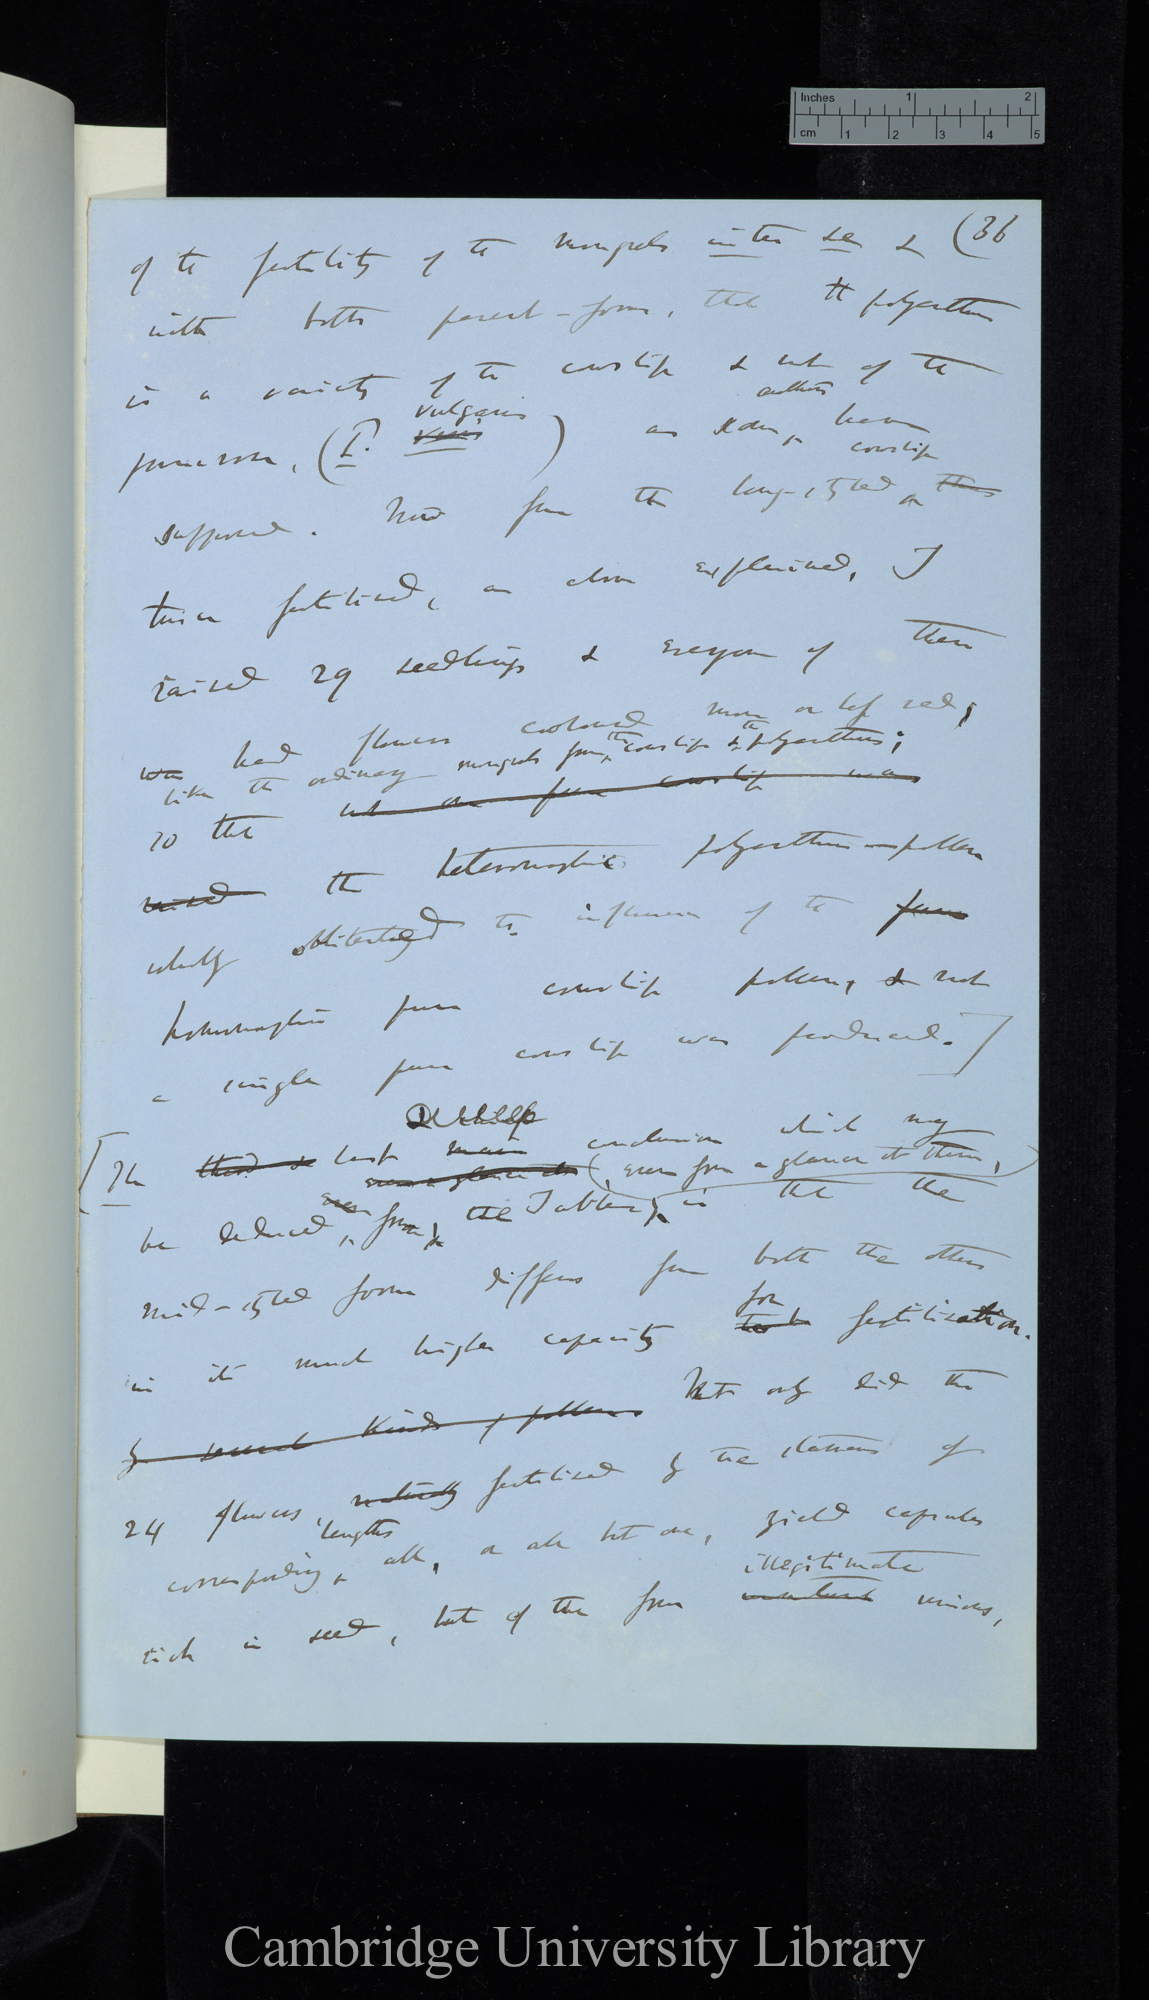 Inches 1 2
cm 1 2 3 4 5
(36
of the fertility of the mongrels inter se &
with both parent-forms, that the polyanthus
is a variety of the cowslip & not of the
primrose, (P. vulgaris veris) as some authors have
supposed. Now from the long-styled cowslip
thus fertilised, as above explained, I
raised 29 seedlings & everyone of them
was had flowers coloured more or less red;
like the ordinary mongrels from the cowslip & the polyanthus;
so that not one pure cowslip was
raised the heteromorphic polyanthus-pollen
wholly obliterated the influence of the pure
homomorphic pure cowslip pollen, & not
a single pure cowslip was produced.]
[The third & last main conclusion which may
even a glance at (, even from a glance at them,)
be deduced even from the Tables, is that the
mid-styled form differs from both the others
in its much higher capacity for fertilisation.
by several kinds of pollen Not only did the
24 flowers, naturally fertilised by the stamens of
corresponding lengths all, or all but one, yield capsules
rich in seed, but of the four illegitimate unions,
Cambridge University Library